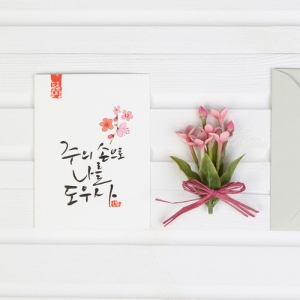 주의 손으로
나를
도우사